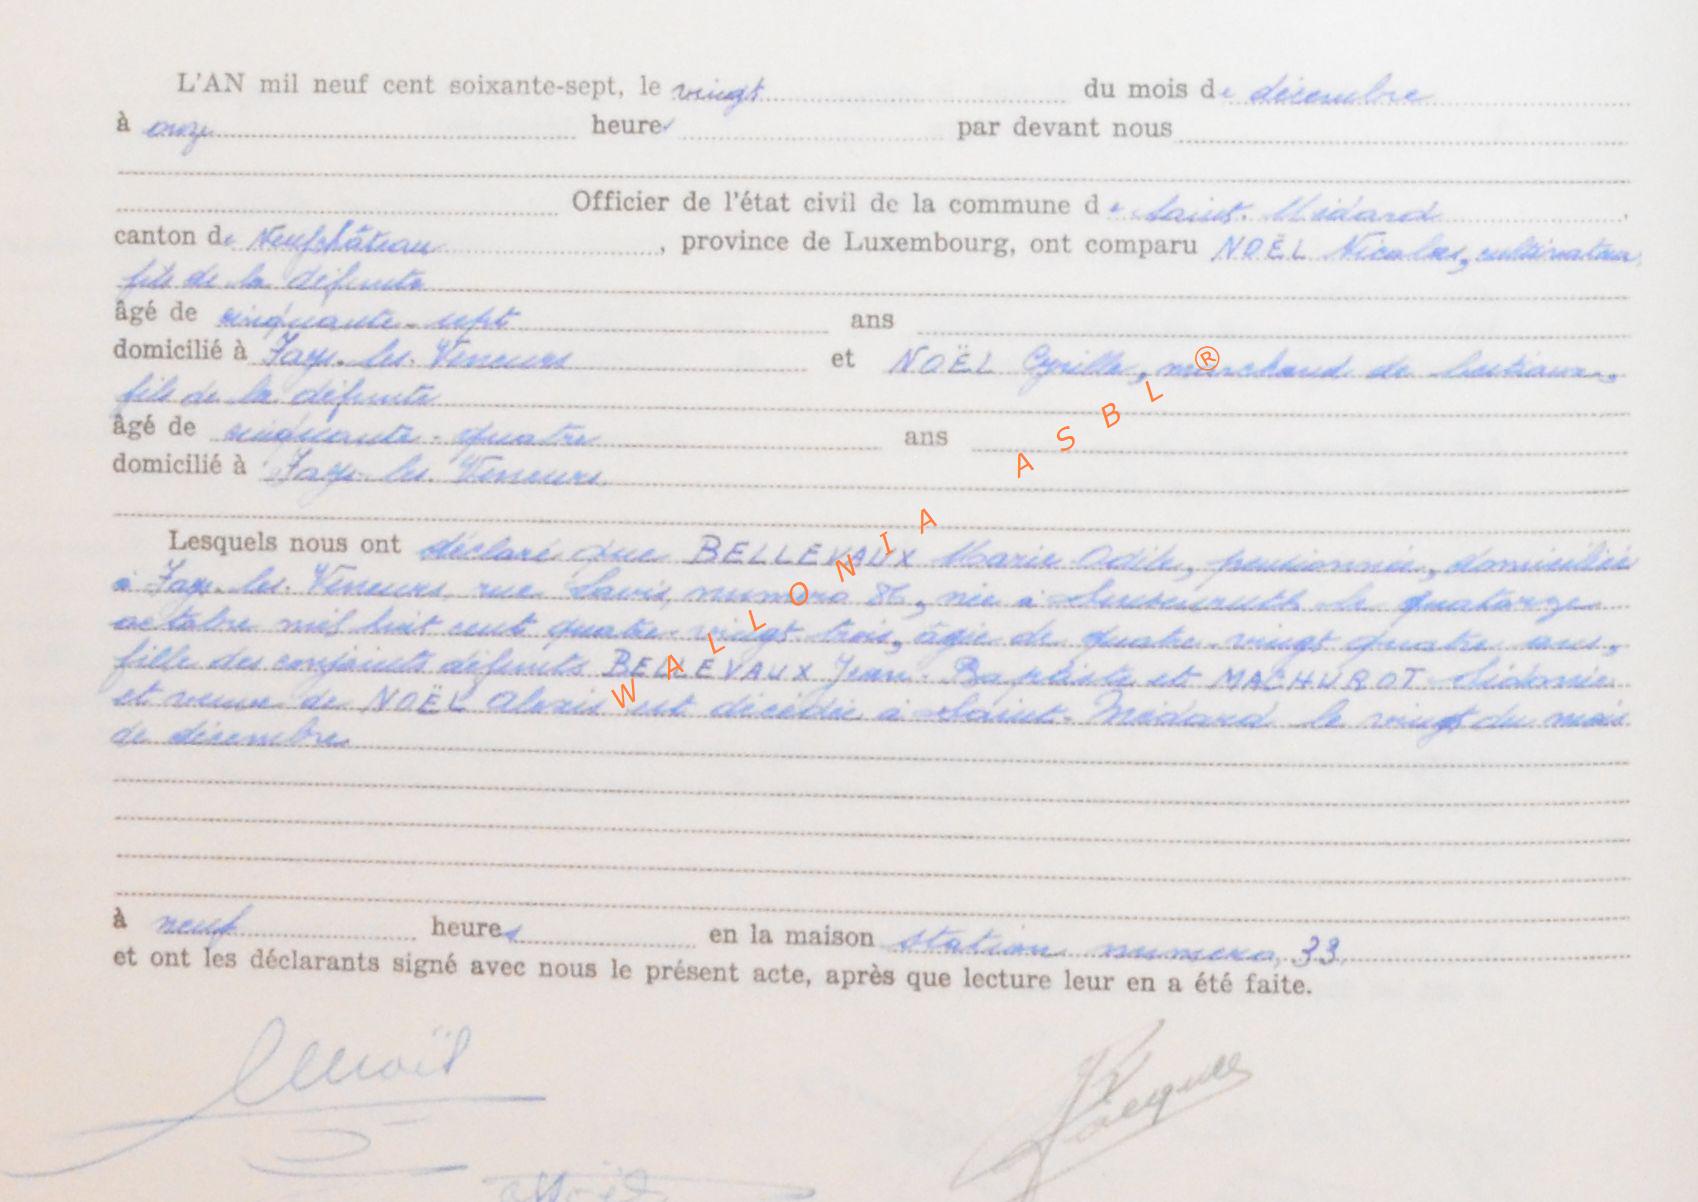 L'AN mil neuf cent soixante-sept, le vingt du mois de décembre
à onze heures par devant nous
Officier de l'état civil de la commune de Saint-Médard
canton de Neufchâteau, province de Luxembourg, ont comparu NOËL Nicolas, cultivateur,
fils de la défunte
âgé de cinquante-sept ans
domicilié à Fays-les-Veneurs et NOËL Cyrille, marchand de bestiaux,
fils de la défunte
âgé de cinquante-quatre ans
domicilié à Fays-les-Veneurs
Lesquels nous ont déclaré que BELLEVAUX Marie Odile, pensionnée, domiciliée
à Fays-les-Veneurs, rue numéro née à le quatorze
octobre mil huit cent quatre-vingt trois, âgée de quatre-vingt quatre ans,
fille des conjoints défunts BELLEVAUX Jean-Baptiste et MACHUROT Sidonie
et veuve de NOËL Alexis est décédée à Saint-Médard le vingt du mois
de décembre
à neuf heures en la maison station numéro 33
et ont les déclarants signé avec nous le présent acte, après que lecture leur en a été faite.
Noël
Jacques
Noël
WALLONIA ASBL ®